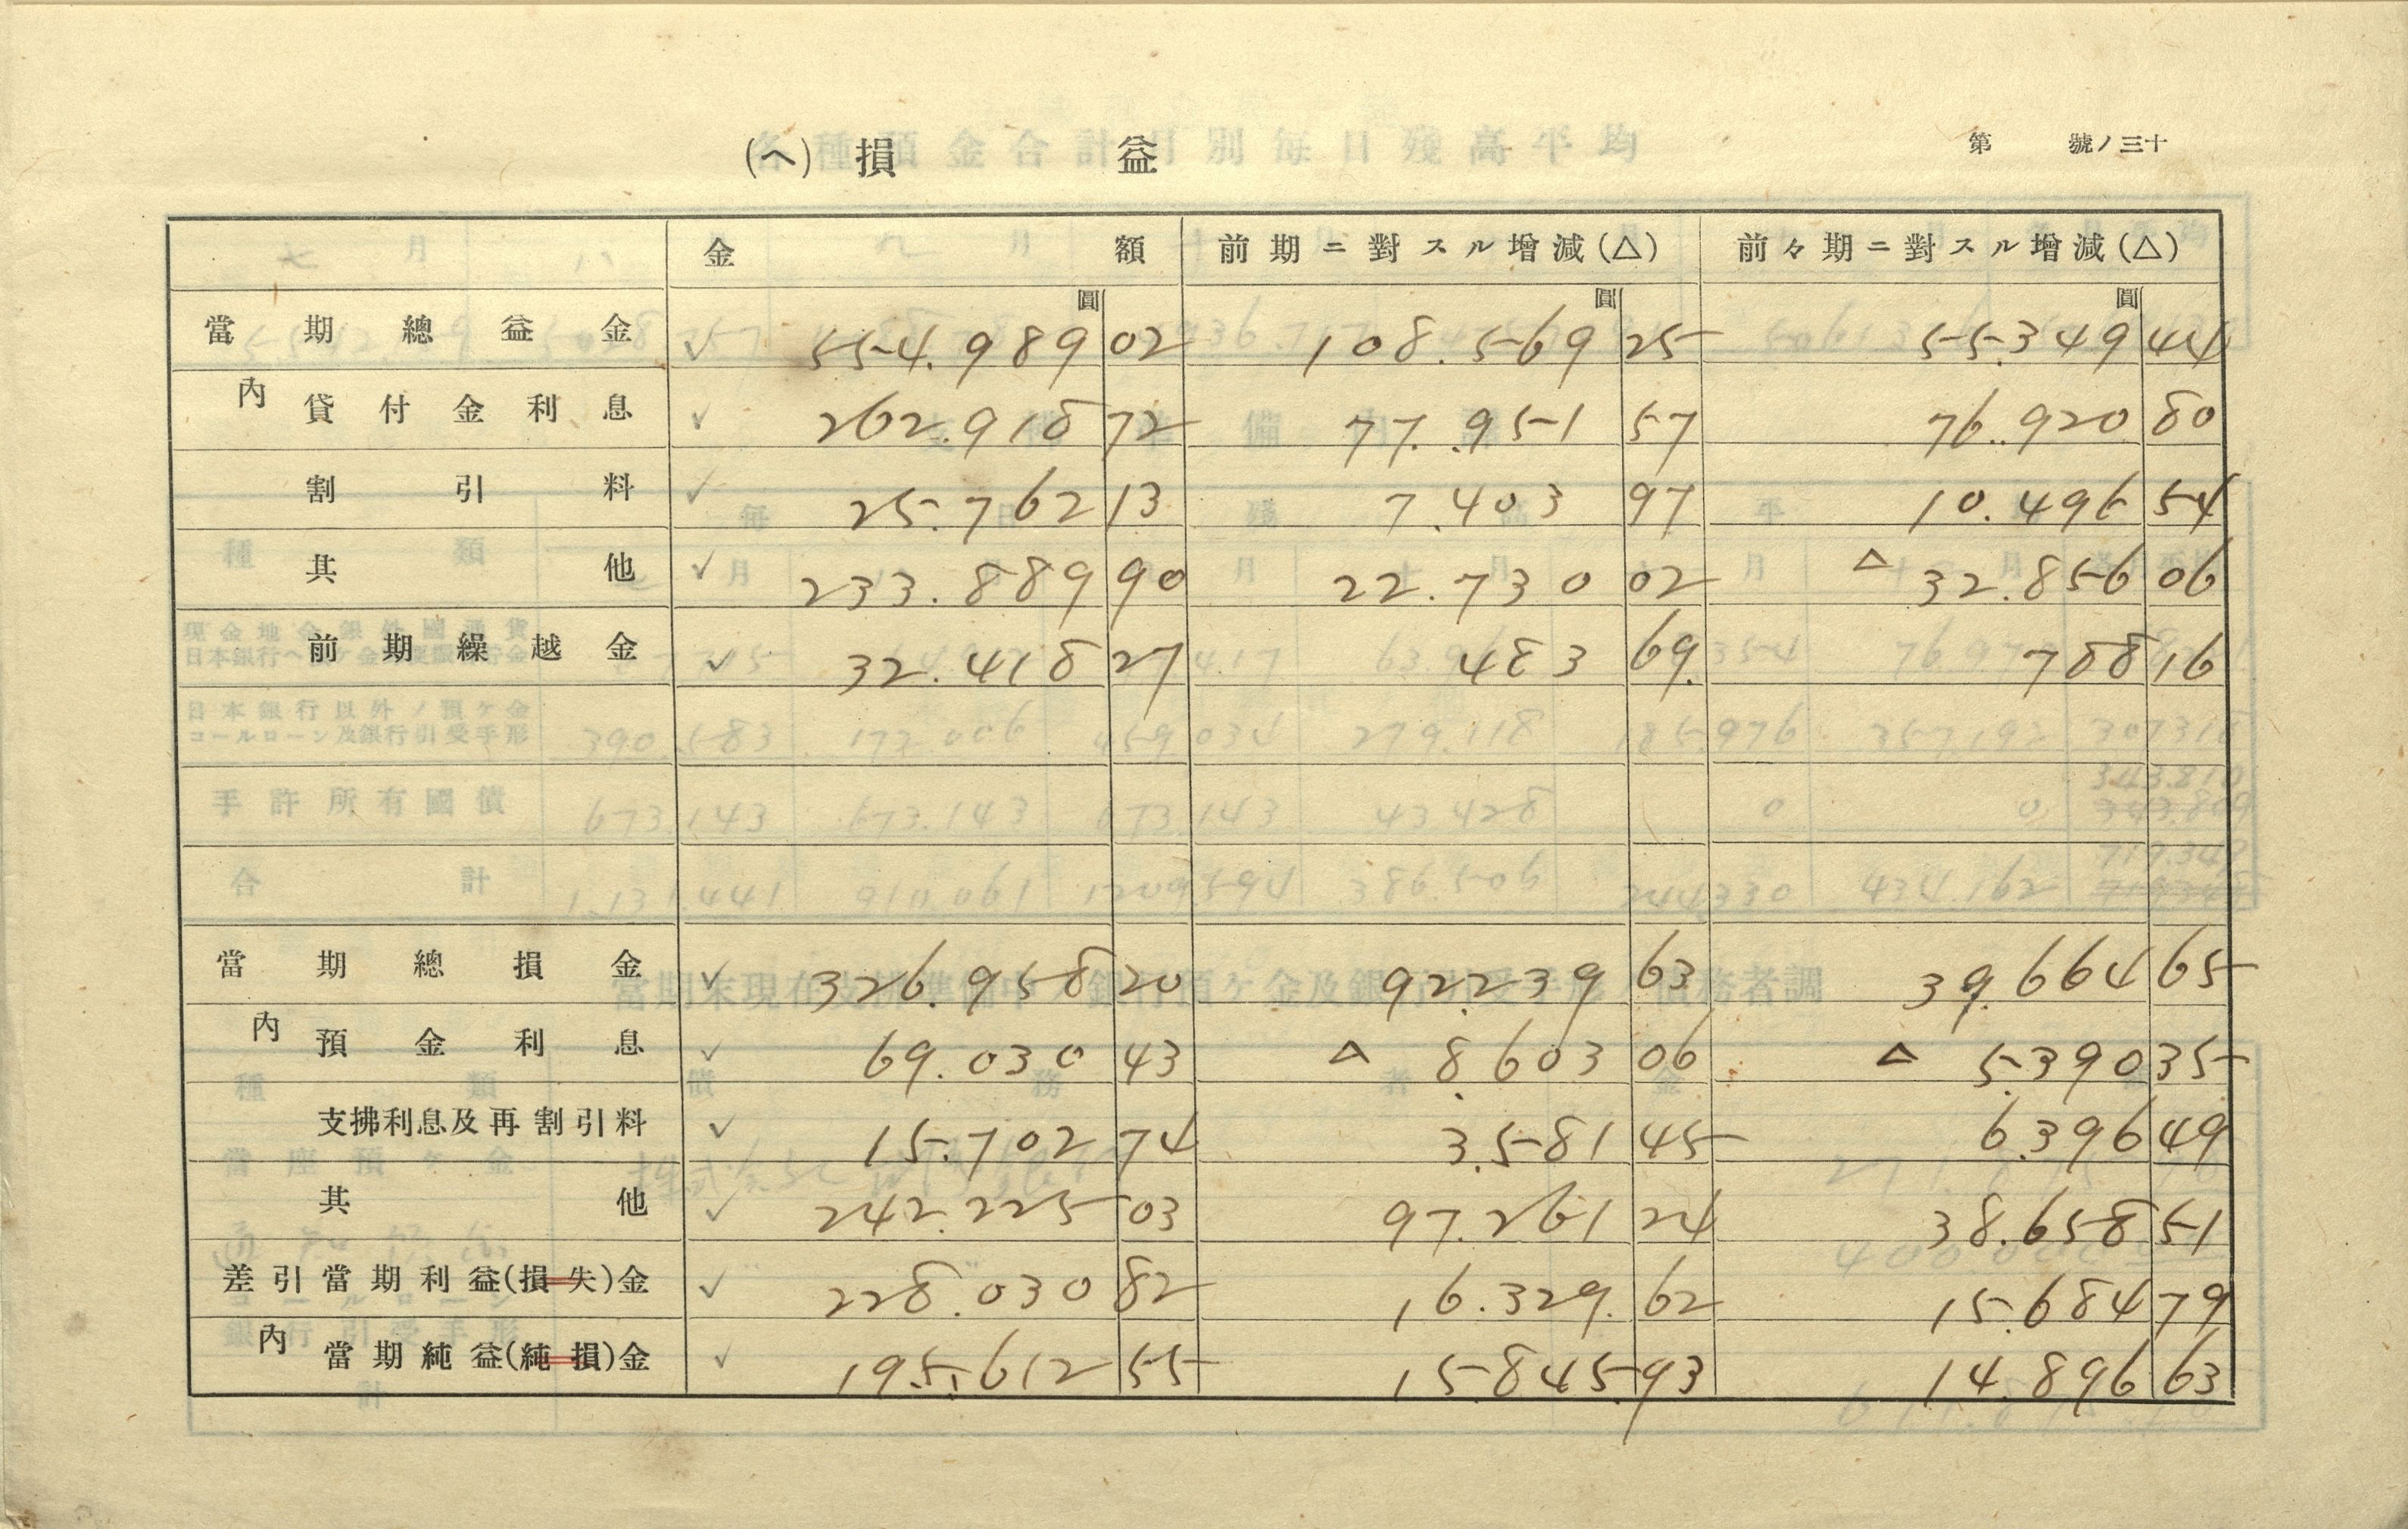 (ヘ) 損 益
第 號ノ三十
金 額 前期ニ對スル增減(△) 前々期ニ對スル增減(△)
圓 圓 圓
當期總益金 ✓ 554.989 02 108.569 25 55.349 44
內 貸付金利息 ✓ 262.918 72 77.951 57 76.920 80
割引料 ✓ 25.762 13 7.403 97 10.496 54
其他 ✓ 233.889 90 22.730 02 △ 32.856 06
前期繰越金 ✓ 32.418 27 483 69 788 16
當期總損金 ✓ 326.958 20 92.239 63 39.664 65
內 預金利息 ✓ 69.030 43 △ 8.603 06 △ 5.390 35
支拂利息及再割引料 ✓ 15.702 74 3.581 45 6.396 49
其他 ✓ 242.225 03 97.261 24 38.658 51
差引當期利益(損失)金 ✓ 228.030 82 16.329 62 15.684 79
內 當期純益(純損)金 ✓ 195.612 55 15.845 93 14.896 63